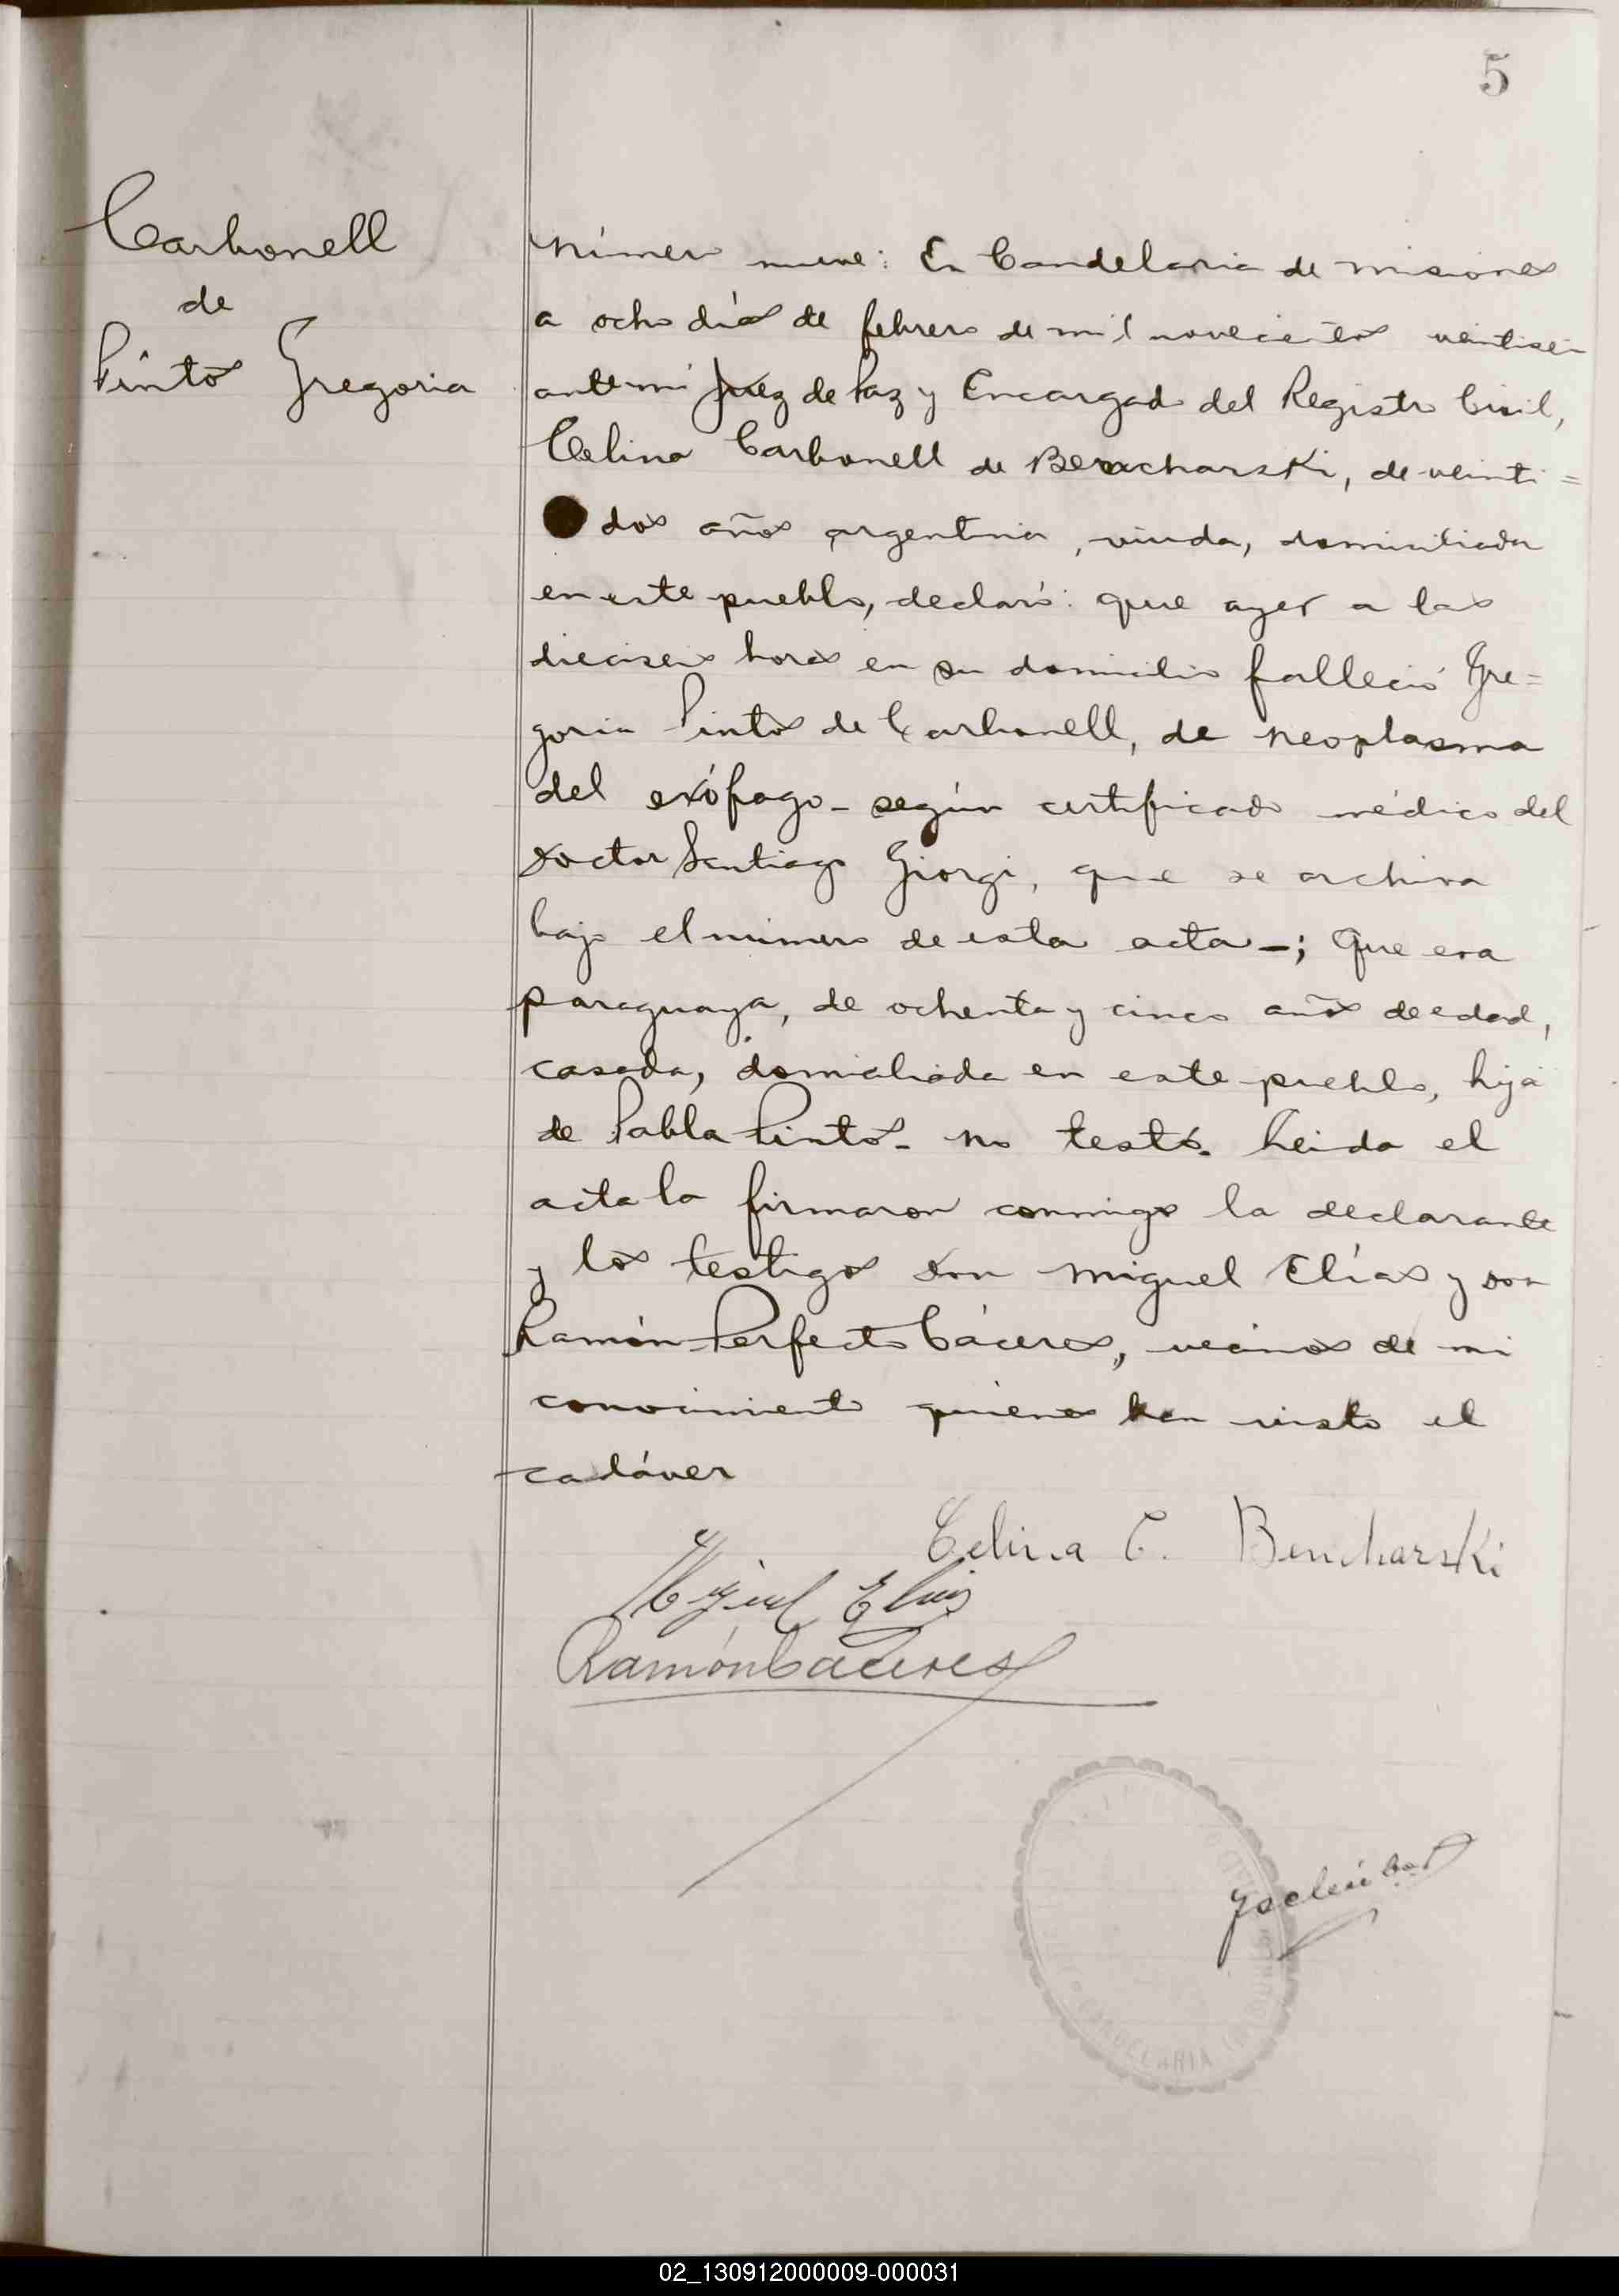 5
Carbonell
de
Pinto Gregoria
Número nueve: En Candelaria de Misiones
a ocho días de febrero de mil novecientos veintiseis
ante mi Juez de Paz y Encargado del Registro Civil,
Celina Carbonell de Bencharski, de veinti=
dos años argentina, viuda, domiciliada
en este pueblo, declaró: que ayer a las
dieciseis horas en su domicilio falleció Gre=
goria Pinto de Carbonell, de neoplasma
del exófago - según certificado médico del
Doctor Santiago Giorgi, que se archiva
bajo el número de esta acta -; Que era
paraguaya, de ochenta y cinco años de edad,
casada, domiciliada en este pueblo, hija
de Pabla Pinto - no testó. Leida el
acta la firmaron conmigo la declarante
y los testigos Don Miguel Elías y Don
Ramón Perfecto Cáceres, vecinos de mi
conocimiento quienes han visto el
cadáver
Celina C. Bencharski
Miguel Elias
Ramón Caceres
CANDELARIA
02_130912000009-000031